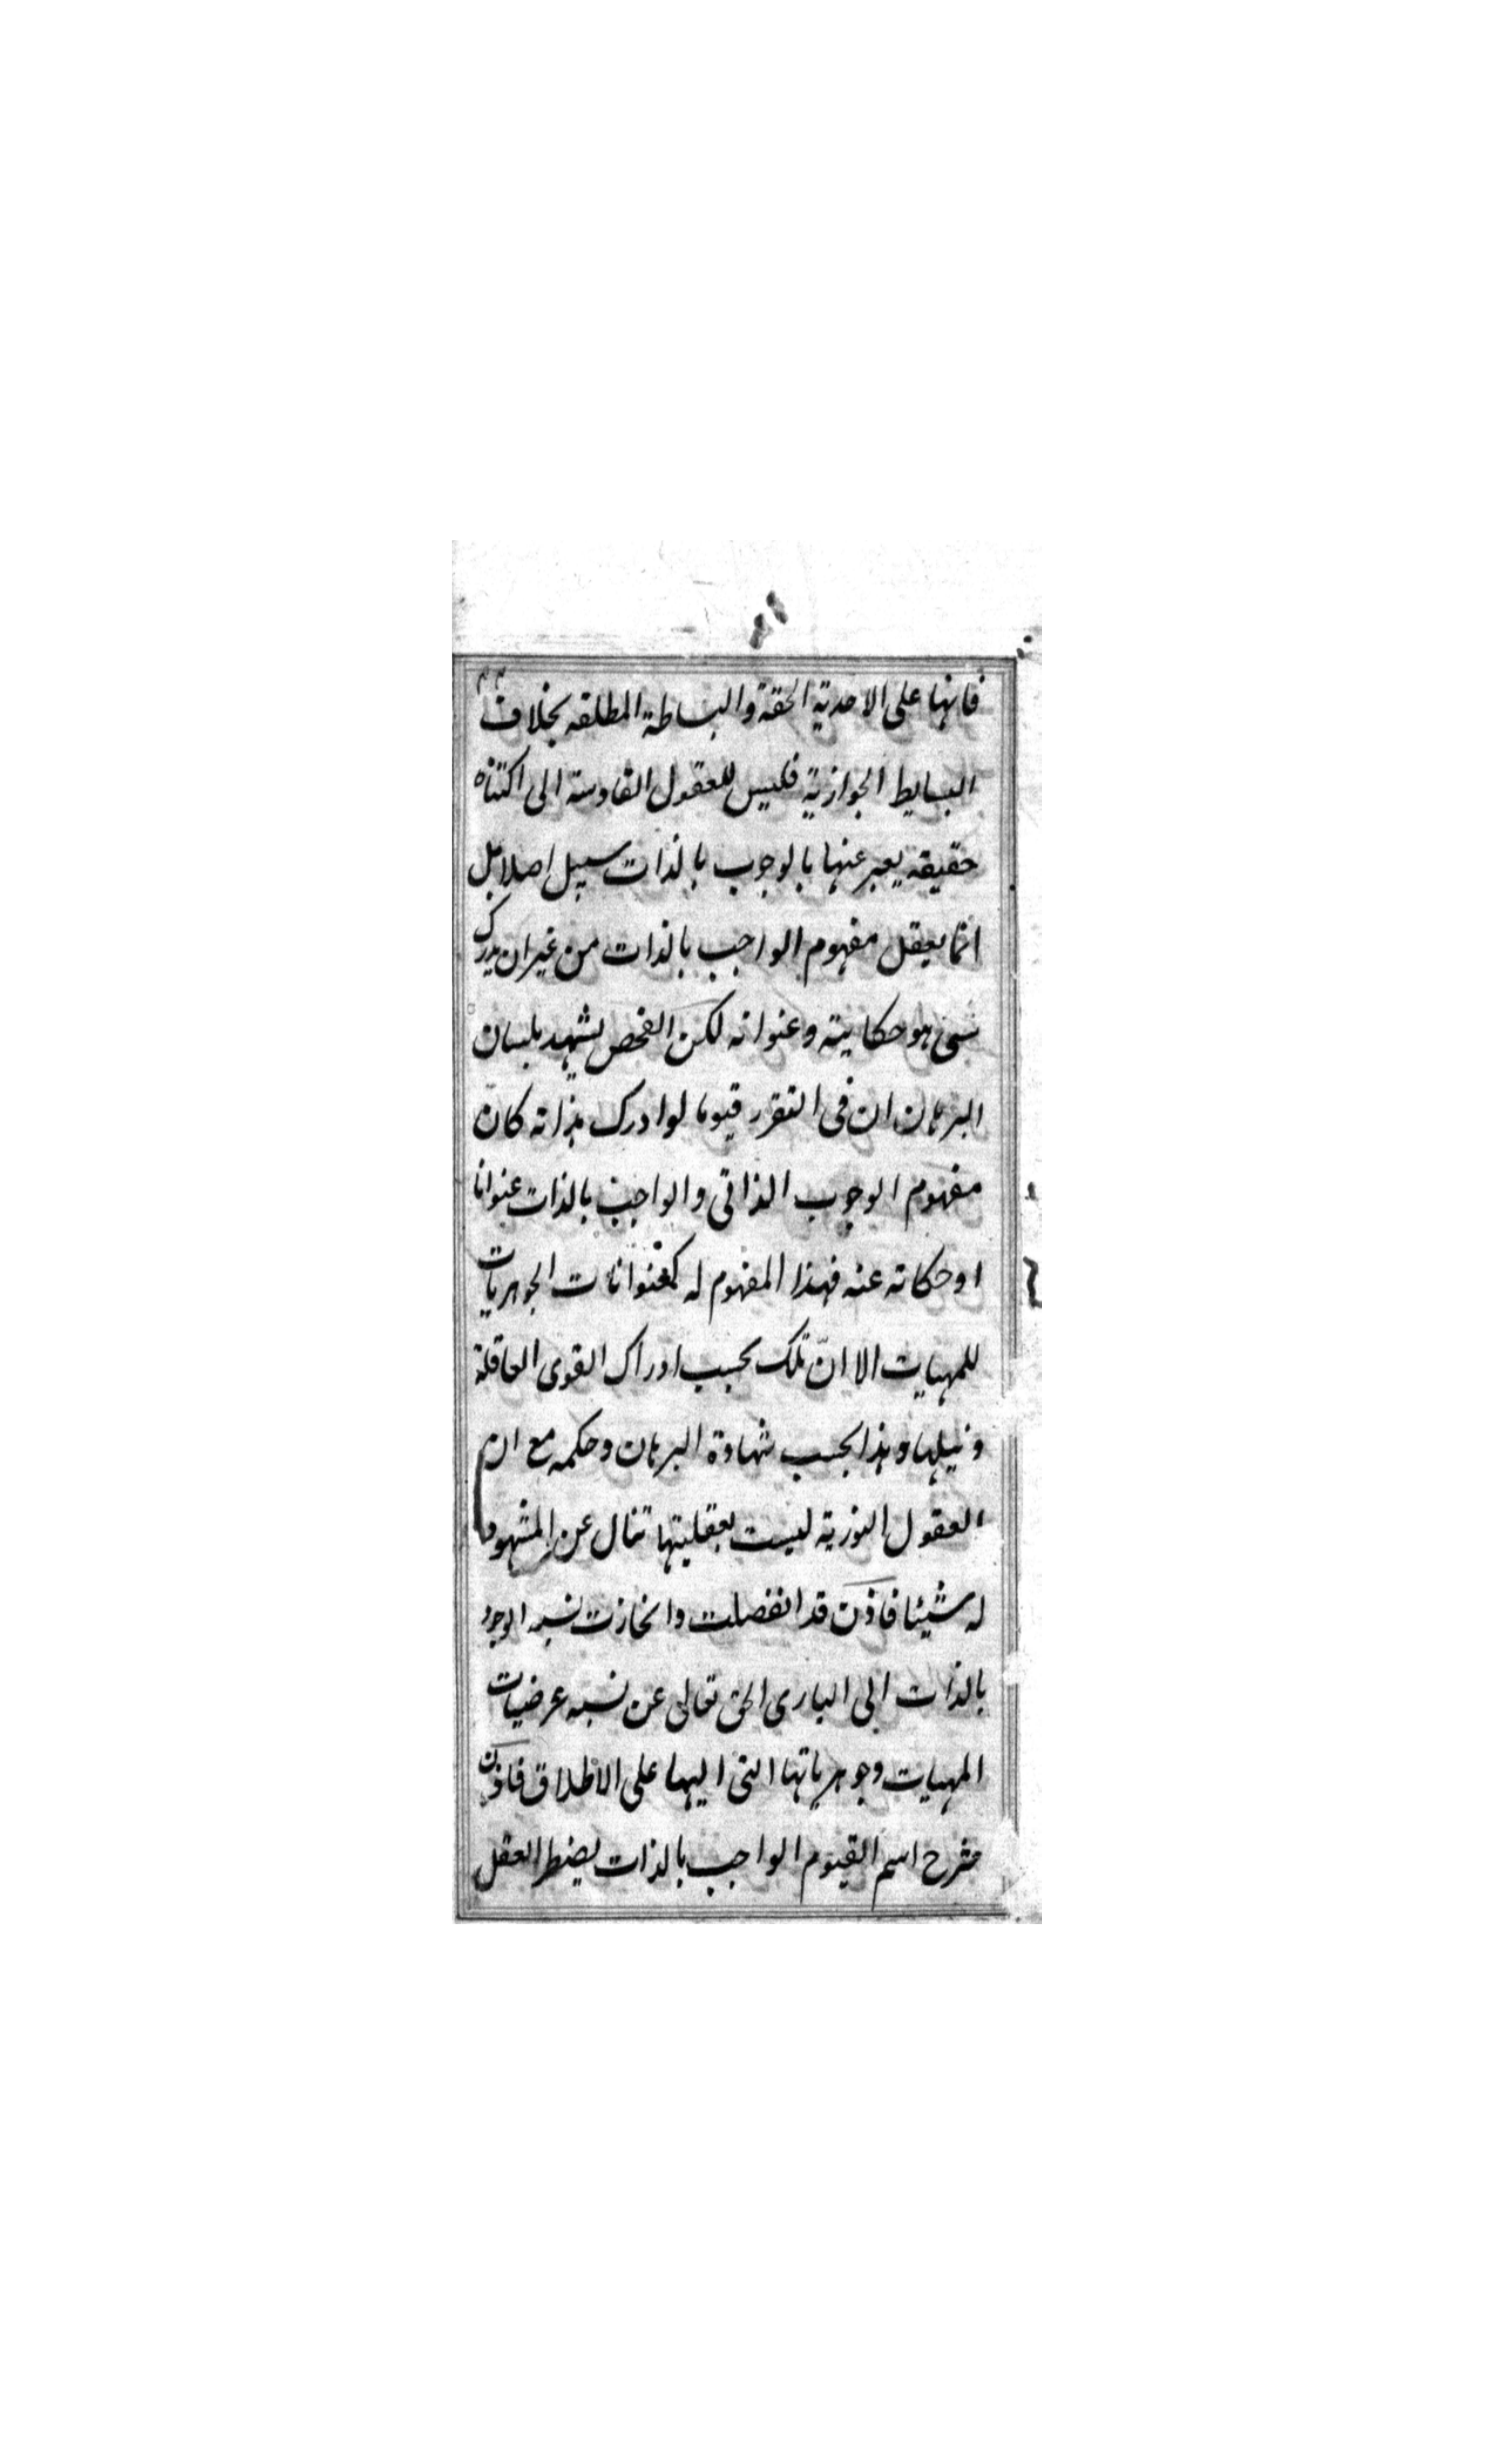 فانها على الاحدية الحقة والبساطة المطلقه بخلاف
البسايط الجوازية فليس للعقول القادسة الى اكتناه
حقيقه يعبر عنها بالوجوب بالذات سبيل اصلا بل
انما يعقل مفهوم الواجب بالذات من غير ان يدرك
شئ هو حكايته وعنوانه لكن الفحص يشهد بلسان
البرهان ان فى التقرر قيوما لو ادرك بذاته كان
مفهوم الوجوب الذاتى والواجب بالذات عنوانا
او حكاته عنه فهذا المفهوم له كعنوانات الجوهريات
للمهيات الا انّ تلك بحسب ادراك القوى العاقلة
ونيلها وهذا بحسب شهادة البرهان وحكمه مع ان
العقول النورية ليست بعقليتها تنال عن المشهود
له شيئا فاذن قد انفصلت وانحازت نسبه الوجود
بالذات الى البارى الحق تعالى عن نسبه عرضيات
المهيات وجوهرياتها التى اليها على الاطلاق فاذن
شرح اسم القيوم الواجب بالذات يضطر العقل